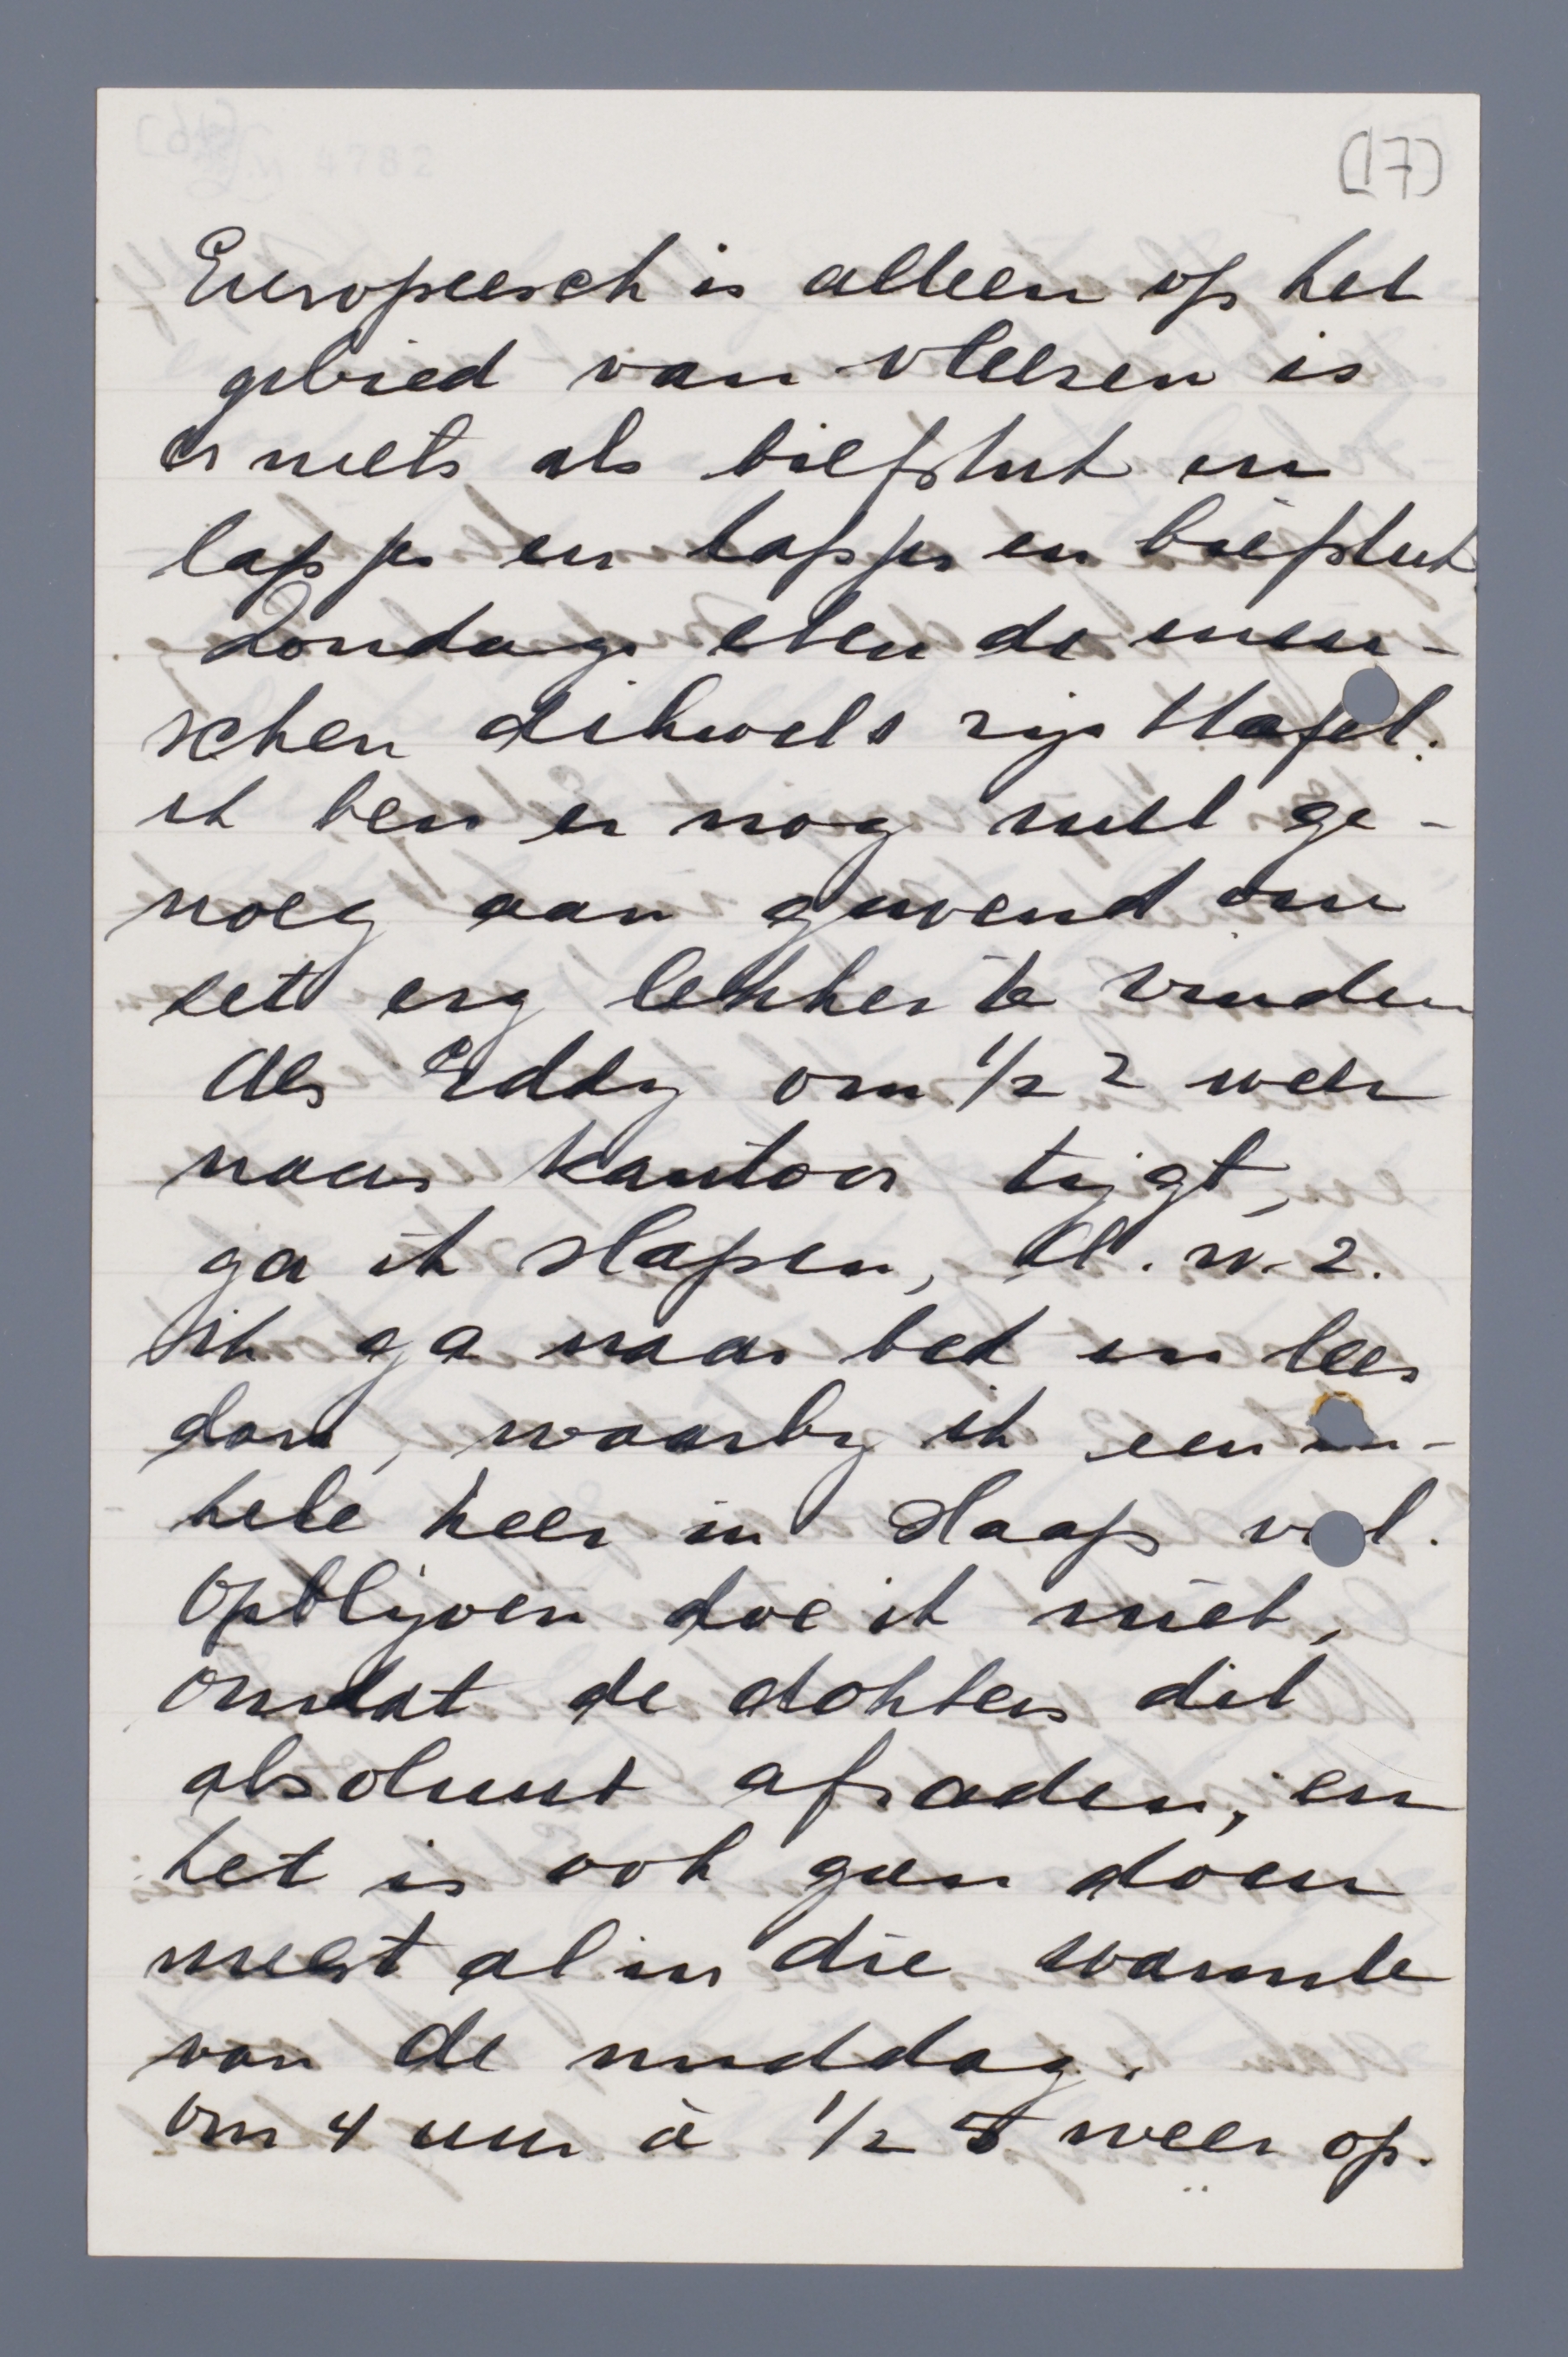 (17)
Europeesch is alleen op het
gebied van vleesen is
er niets als biefstuk en
lapjes en lapjes en biefstuk
Zondags eten de men-
schen dikwels rijsttafel.
ik ben er nog niet ge-
noeg aan gewend om
het erg lekker te vinden
Als Eddy om 1/2 2 weer
naar kantoor tijgt,
ga ik slapen, d.w.z.
ik ga naar bed en lees
dan, waarby ik een en-
kele keer in slaap val.
Opblijven doe ik niet,
omdat de dokters dit
absoluut afraden, en
het is ook geen doen
meest al in die warmte
van de middag.
Om 4 uur à 1/2 5 weer op.